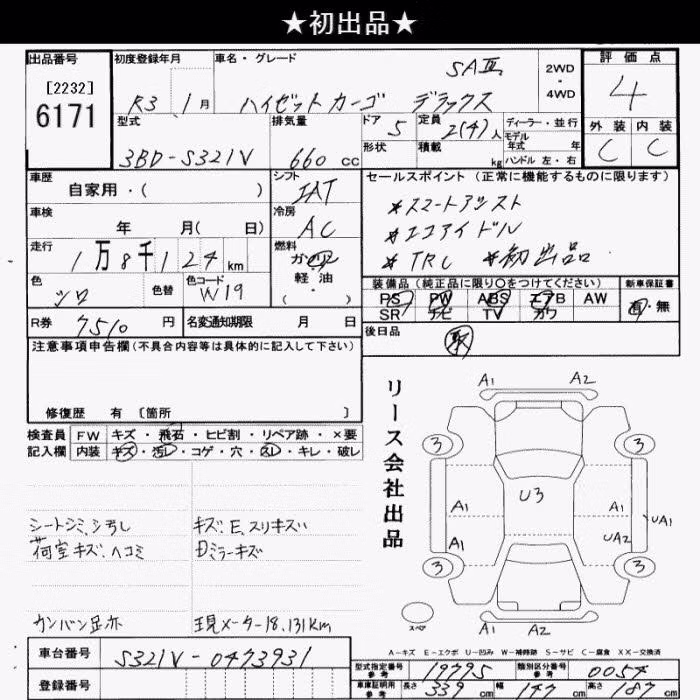 ★初出品★
出品番号 初度登録年月 車名・グレード 評価点
[2232]
6171
R3 1月 ハイゼットカーゴ デラックス SAⅢ
2WD
・
4WD
4
型式 排気量 ドア 定員 ディーラー・並行 外装 内装
3BD-S321V 660cc 5 2(4)人
モデル年式 年
形状 積載 kg ハンドル 左・右
C C
車歴 シフト セールスポイント (正常に機能するものに限ります)
自家用・( ) IAT
*スマートアシスト
車検 年 月( 日) 冷房 AC
*エコアイドル
走行 1万8千124km 燃料 ガソリン
軽油
・( )
*TRC *初出品
色 ツロ 色替 色コード W19
装備品 (純正品に限り○をつけてください) 新車保証書
PS PW ABS エアB AW 有・無
SR ナビ TV カワ
R券 7510円 名変通知期限 月 日 後日品
取
注意事項申告欄(不具合内容等は具体的に記入して下さい)
修復歴 有 〔箇所 〕
リース会社出品
検査員 FW キズ・飛石・ヒビ割・リペア跡・×要
記入欄 内装 キズ・汚レ・コゲ・穴・スレ・キレ・破レ
シートシミ、シ汚し キズ、E、スリキズハ
荷室キズ、ヘコミ Dミラーキズ
カンバン足亦 現メーター18,131km
A1 A2
3 3
U3
A1 A1 UA1
A1 UA2
3 3
A1 A2
スペア
A-キズ E-エクボ U-凹み W-補修跡 S-サビ C-腐食 XX-交換済
車台番号 S321V-0473931
登録番号
型式指定番号 参考 19795 類別区分番号 参考 0054
車庫証明用 参考 長さ 339cm 幅 147cm 高さ 187cm